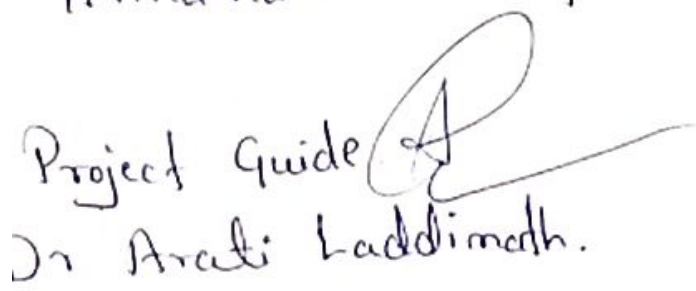 Project Guide
Dr Arati Laddimath.